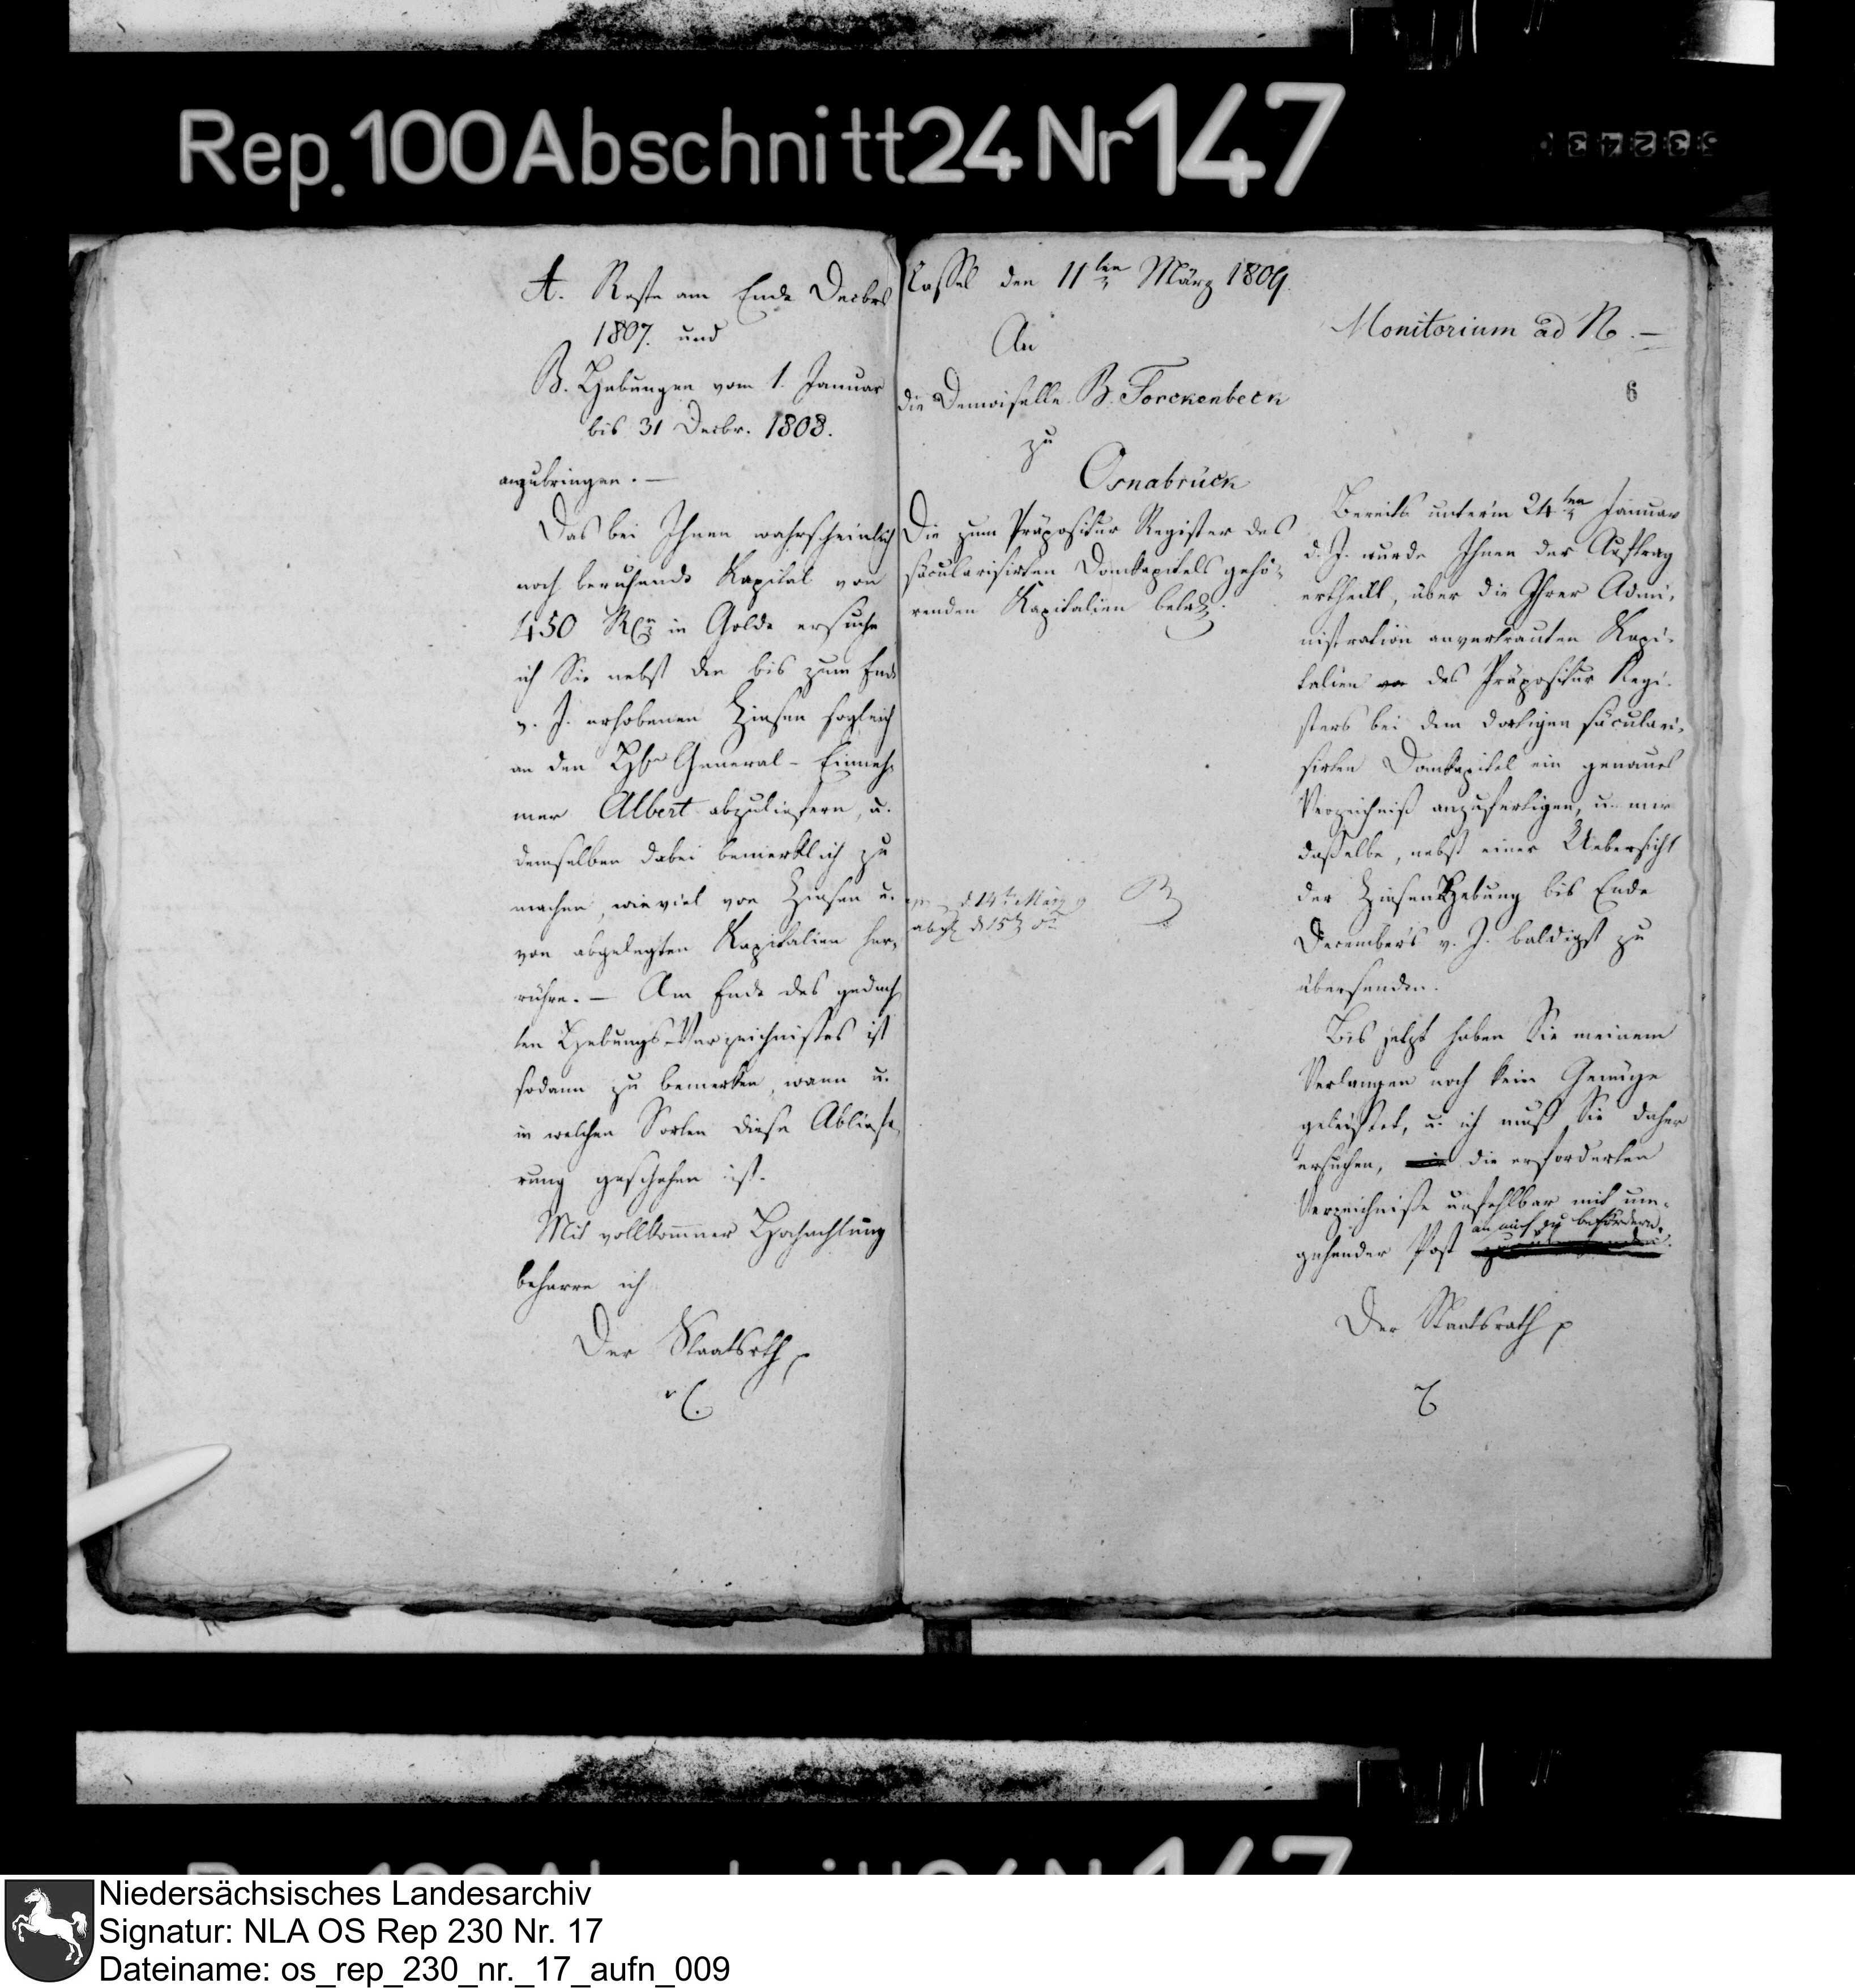 Rep. 100 Abschnitt 24 Nr 147
A. Reste am Ende Decbrs
1807. und
B. Hebungen vom 1. Januar
bis 31 Decbr. 1808.
anzubringen. —
Das bei Ihnen wahrscheinlich
noch beruhende Kapital von
450 in Golde ersuche
ich Sie nebst den bis zum Ende
v. J. erhobenen Zinsen sogleich
an den General-Einneh-
mer Albert abzuliefern, u.
demselben dabei bemerklich zu
machen, wieviel von Zinsen u.
von abgelegten Kapitalien her-
rühre. — Am Ende des gedach-
ten Hebungs-Verzeichnisses ist
sodann zu bemerken, wann u.
in welchen Sorten diese Abliefe-
rung geschehen ist.
Mit vollkommner Hochachtung
beharre ich
Der Staatsrth
Cassel den 11ten März 1809.
An
die Demoiselle B. Forckenbeck
zu
Osnabrück
Die zum Präpositur Register des
säcularisirten Domkapitels gehö-
renden Kapitalien betr.
d 14t März 9
abges. d 15t
Monitorium ad No. —
6
Bereits unterm 24ten Januar
d. J. wurde Ihnen der Auftrag
ertheilt, über die Ihrer Admi-
nistration anvertrauten Kapi-
talien des Präpositur Regi-
sters bei dem dortigen säculari-
sirten Domkapitel ein genaues
Verzeichniß anzufertigen, u. mir
dasselbe, nebst einer Uebersicht
der Zinsen Hebung bis Ende
Decembers v. J. baldigst zu
übersenden.
Bis jetzt haben Sie meinem
Verlangen noch kein Genüge
geleistet, u. ich muß Sie daher
ersuchen, die erforderten
Verzeichniße unfehlbar mit um-
an mich zu befördern.
gehender Post
Der Staatsrath
Niedersächsisches Landesarchiv
Signatur: NLA OS Rep 230 Nr. 17
Dateiname: os_rep_230_nr._17_aufn_009